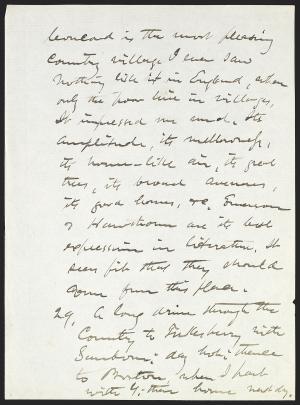 Concord is the most pleasing
country village I ever saw
nothing like it in England, where
only the poor live in villages.
It impressed me much. Its
amplitude, its mellowness,
its home-like air, its great
trees, its broad avenues,
its good homes, &c. Emerson
& Hawthorne are its best
expression in literature. It
seems fit that they should
come from this place.
29, A long drive through the
Country to with
Sanborn; day hot; thence
to Boston, when I part
with G, then home next day.